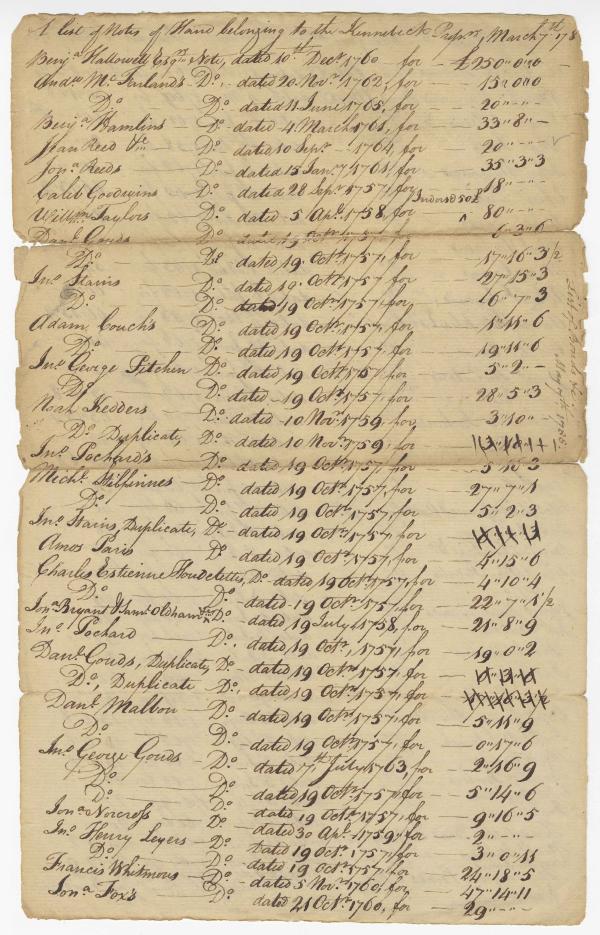 A list of Notes of Hand belonging to the Kennebeck Propr.s March 7th 178
Benj.a Hallowell Esq.rs Note, dated 10th Decr. 1760 for — £250"0"0
And.w Mc.Farlands — Do. — dated 20 Nov.r 1762, for — 15"0"0
Do. — Do. dated 11 June 1765, for — 20"-"-
Benj.a Hamlins — Do. dated 4 March 1761, for — 33"8"-
Reed — Do. dated 10 Sepr. 1764, for — 20"-"-
Jon.a Reeds — Do. dated 15 Jan.y 1761, for — 35"3"3
Caleb Goodwins — Do. dated 28 Sepr. 1757, for — 18"-
Will.m Taylors — Do. dated 5 Apl. 1758, for Indorsd 50£ — 80"-"-
Dan.l Gouds — Do. dated 19 Octr. 1757, for — 6"3"6
Do. — Do. dated 19 Octr. 1757, for — 17"16"3 1/2
Jno. Stains — Do. dated 19 Octr. 1757, for — 27"15"3
Do. — Do. dated 19 Octr. 1757, for — 16"7"3
Adam Couchs — Do. dated 19 Octr. 1757, for — 1"11"6
Do. — Do. dated 19 Octr. 1757, for — 19"11"6
Jno. George Pitchen — Do. dated 19 Octr. 1757, for — 5"2"-
Do. — Do. dated 19 Octr. 1757, for — 28"5"3
Noah Kedders — Do. dated 10 Nov.r 1759, for — 3"10"-
Do. Duplicate, Do. dated 10 Nov.r 1759, for
Jno. Pochard's — Do. dated 19 Octr. 1757, for — 5"10"3
Mich.l Stilfinnes — Do. dated 19 Octr. 1757, for — 27"7"1
Do. — Do. dated 19 Octr. 1757, for — 5"2"3
Jno. Stains, Duplicate, Do. dated 19 Octr. 1757, for
Amos Paris — Do. dated 19 Octr. 1757, for — 4"15"6
Charles Estienne Houdelettes, Do. dated 19 Octr. 1757, for — 4"10"4
Do. — Do. dated 19 Octr. 1757, for — 22"7"1 1/2
Jon.a Bryant & Sam.l Oldham Do. dated 19 July 1758, for — 21"8"9
Jno. Pochard — Do., dated 19 Octr., 1757, for — 19"0"2
Dan.l Gouds, Duplicate, Do. dated 19 Octr. 1757, for
Do., Duplicate — Do., dated 19 Octr. 1757, for
Dan.l Malbon — Do. dated 19 Octr. 1757, for — 5"11"9
Do. — Do. dated 19 Octr. 1757, for — 0"17"6
Jno. George Gouds — Do. dated 7th July 1763, for — 2"16"9
Do. — Do. dated 19 Octr. 1757, for — 5"14"6
Do. — Do. dated 19 Octr. 1757, for — 9"16"5
Jon.a Norcross — Do. dated 30 Apr. 1759, for — 2"-"-
Jno. Henry Leyers — Do. dated 19 Octr. 1757, for — 3"0"11
Do. — Do. dated 19 Octr. 1757, for — 24"18"5
Francis Whitmous — Do. dated 5 Nov.r 1760, for — 47"14"11
Jon.a Fox's — Do. dated 21 Octr. 1760, for — 29"-"-